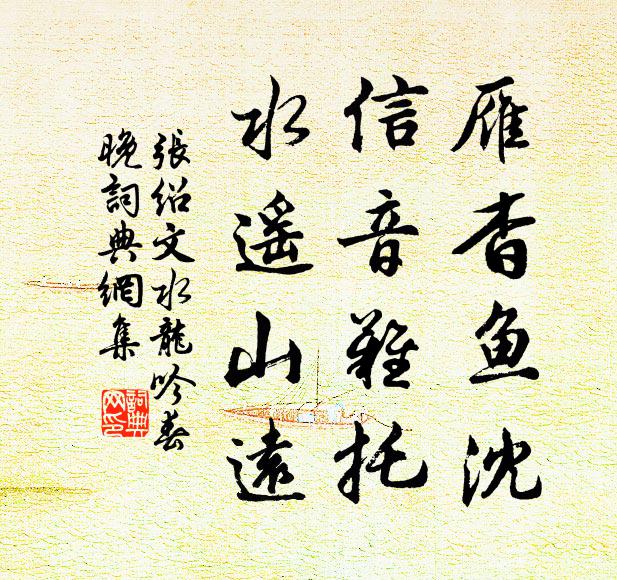 雁杳鱼沈
信音难托
水遥山远
張紹文水龍吟春
晚詞典網集
詞典
网印